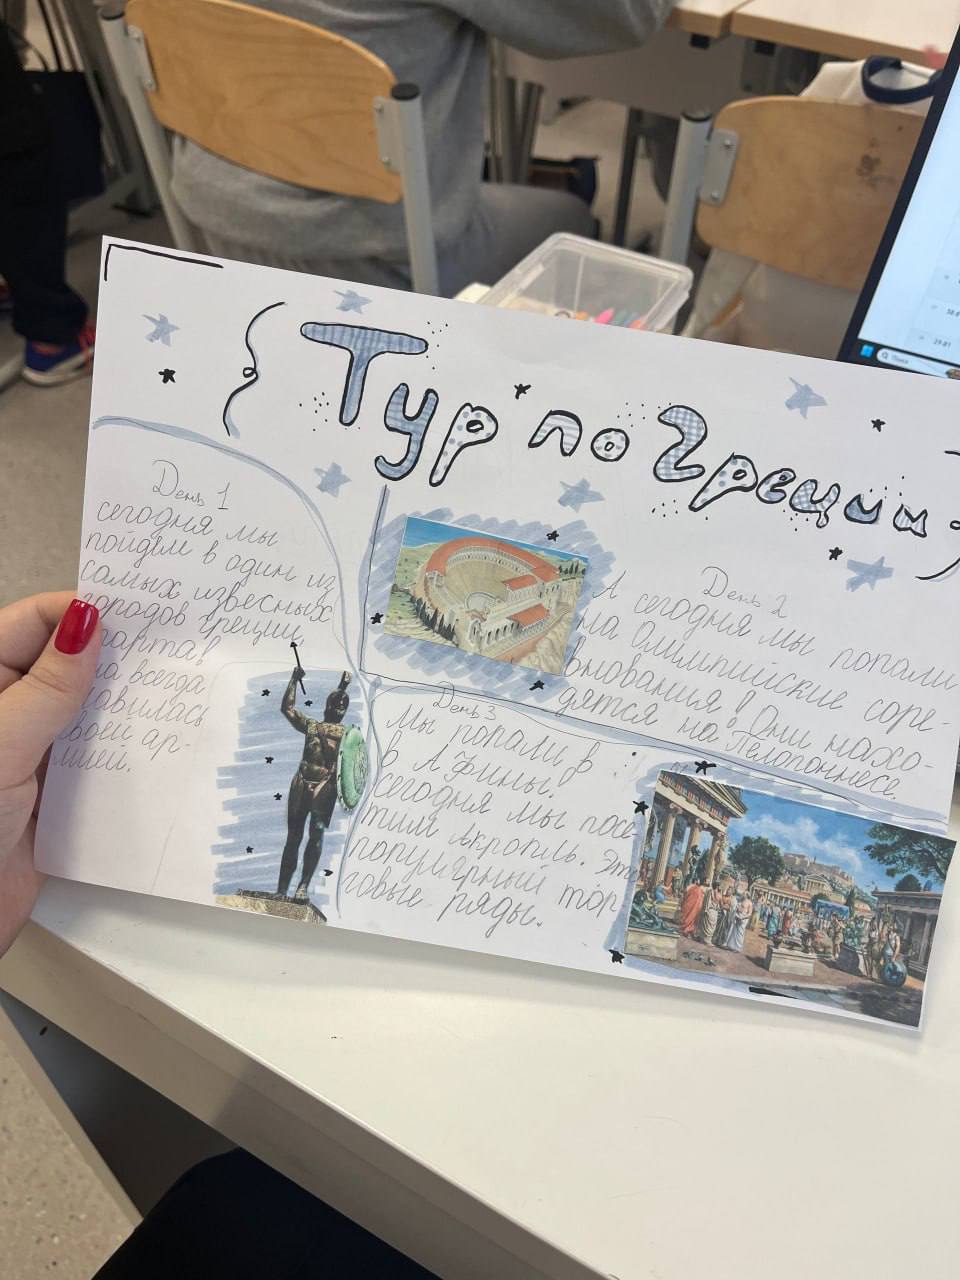 Тур по Греции
День 1
сегодня мы
пойдём в один из
самых извесных
городов Греции,
Спарта!
на всегда
славилась
своей ар-
мией.
День 2
А сегодня мы попали
на Олимпийские соре-
внования! Они нахо-
дятся на Пелопоннесе.
День 3
Мы попали в
в Афины.
сегодня мы посе
тим Акрополь. Это
популярный тор
говые ряды.
Поиск